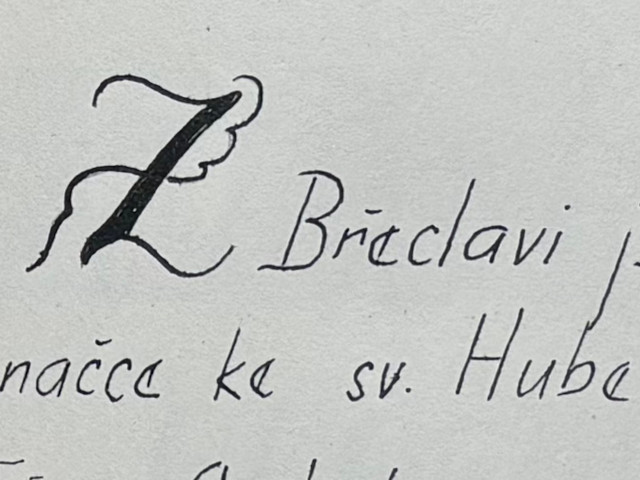 Z Břeclavi
načce ke sv. Hube